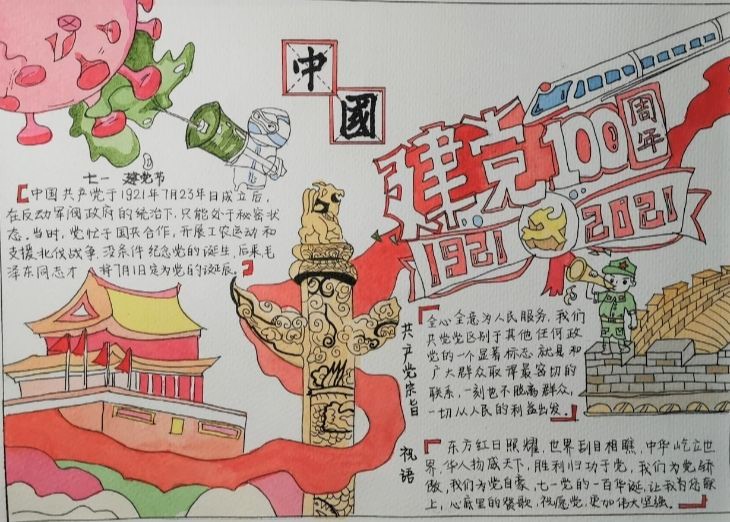 中國
建党100周年
1921 2021
七一 建党节
中国共产党于1921年7月23年日成立后,
在反动军阀政府的统治下,只能处于秘密状
态。当时,党忙于国共合作,开展工农运动和
支援北伐战争,没条件纪念党的诞生,后来毛
泽东同志才 将7月1日定为党的诞辰。
共产党宗旨
全心全意为人民服务,我们
共党党区别于其他任何政
党的一个显著标志就是和
广大群众取得最密切的
联系,一刻也不脱离群众,
一切从人民的利益出发。
祝语
东方红日照耀,世界刮目相瞧,中华屹立世
界,华人扬威天下,胜利归功于党,我们为党骄
傲,我们为党自豪,七一党的一百华诞,让我们献
上,心底里的赞歌,祝愿党,更加伟大坚强。